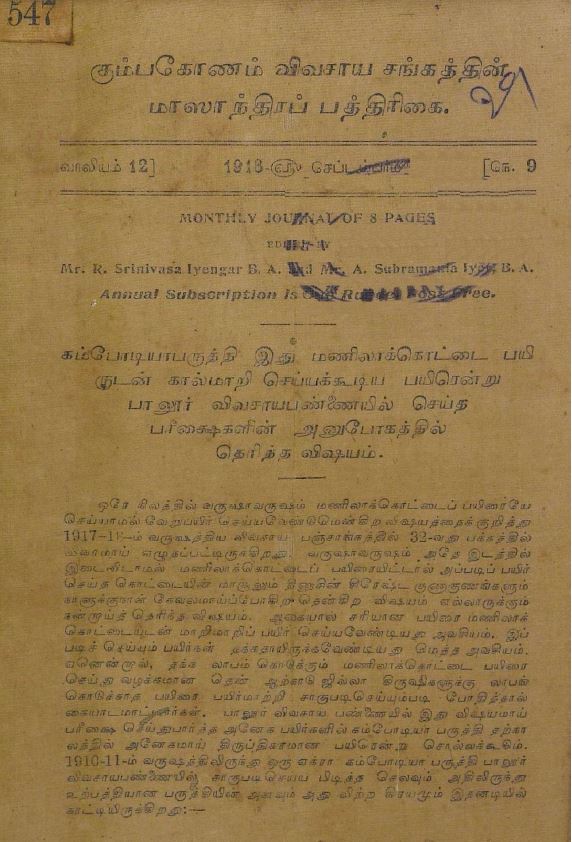 547
கும்பகோணம் விவசாய சங்கத்தின்
மாஸாந்திரப் பத்திரிகை.
வாலியம் 12] 1918-ஸ்ரீ செப்டம்பர் [நெ. 9
MONTHLY JOURNAL OF 8 PAGES
EDITED BY
Mr. R. Srinivasa Iyengar B. A. And Mr. A. Subramania Iyer, B. A.
Annual Subscription is One Rupee Post Free.
கம்போடியாபருத்தி இது மணிலாக்கொட்டை பயி
ருடன் கால்மாறி செய்யக்கூடிய பயிரென்று
பாலூர் விவசாயபண்ணையில் செய்த
பரீக்ஷைகளின் அனுபோகத்தில்
தெரித்த விஷயம்.
ஒரே நிலத்தில் வருஷாவருஷம் மணிலாக்கொட்டைப் பயிரையே
செய்யாமல் வேறுபயிர் செய்யவேண்டுமென்கிற விஷயத்தைக்குறித்து
1917-18-ம் வருஷத்திய விவசாய பஞ்சாங்கத்தில் 32-வது பக்கத்தில்
விவரமாய் எழுதப்பட்டிருக்கிறது. வருஷாவருஷம் அதே இடத்தில்
இடைவிடாமல் மணிலாக்கொட்டைப் பயிரையிட்டால் அப்படிப் பயிர்
செய்த கொட்டையின் மாசூலும் நிலத்தின் குணாகுணங்களும்
நாளுக்குநாள் கேவலமாய்ப்போகிற தென்கிற விஷயம் எல்லாருக்கும்
நன்றாய்த் தெரித்த விஷயம். ஆகையால் சரியான பயிரை மணிலாக்
கொட்டையுடன் மாறிமாறிப் பயிர் செய்யவேண்டியது அவசியம். இப்
படிச் செய்யும் பயிர்கள் தக்கதாயிருக்கவேண்டியது மெத்த அவசியம்.
ஏனென்றால், தக்க லாபம் கொடுக்கும் மணிலாக்கொட்டை பயிரை
செய்து வழக்கமான தென் ஆற்காடு ஜில்லா கிருஷிகளுக்கு லாபங்
கொடுக்காத பயிரை பயிர்மாற்றி சாகுபடிசெய்யும்படி போதித்தால்
கையாடமாட்டார்கள். பாலூர் விவசாய பண்ணையில் இது விஷயமாய்
பரீக்ஷை செய்துபார்த்த அனேக பயிர்களில் கம்போடியா பருத்தி தற்கா
லத்தில் அனேகமாய் திருப்திகரமான பயிரென்று சொல்லக்கூடும்.
1910-11-ம் வருஷத்திலிருந்து ஒரு ஏக்ரா கம்போடியா பருத்தி பாலூர்
விவசாயபண்ணையில் சாகுபடிசெய்ய பிடித்த செலவும் அதிலிருந்து
உற்பத்தியான பருத்தியின் அளவும் அது விற்ற கிரயமும் இதனடியில்
காட்டியிருக்கிறது:—